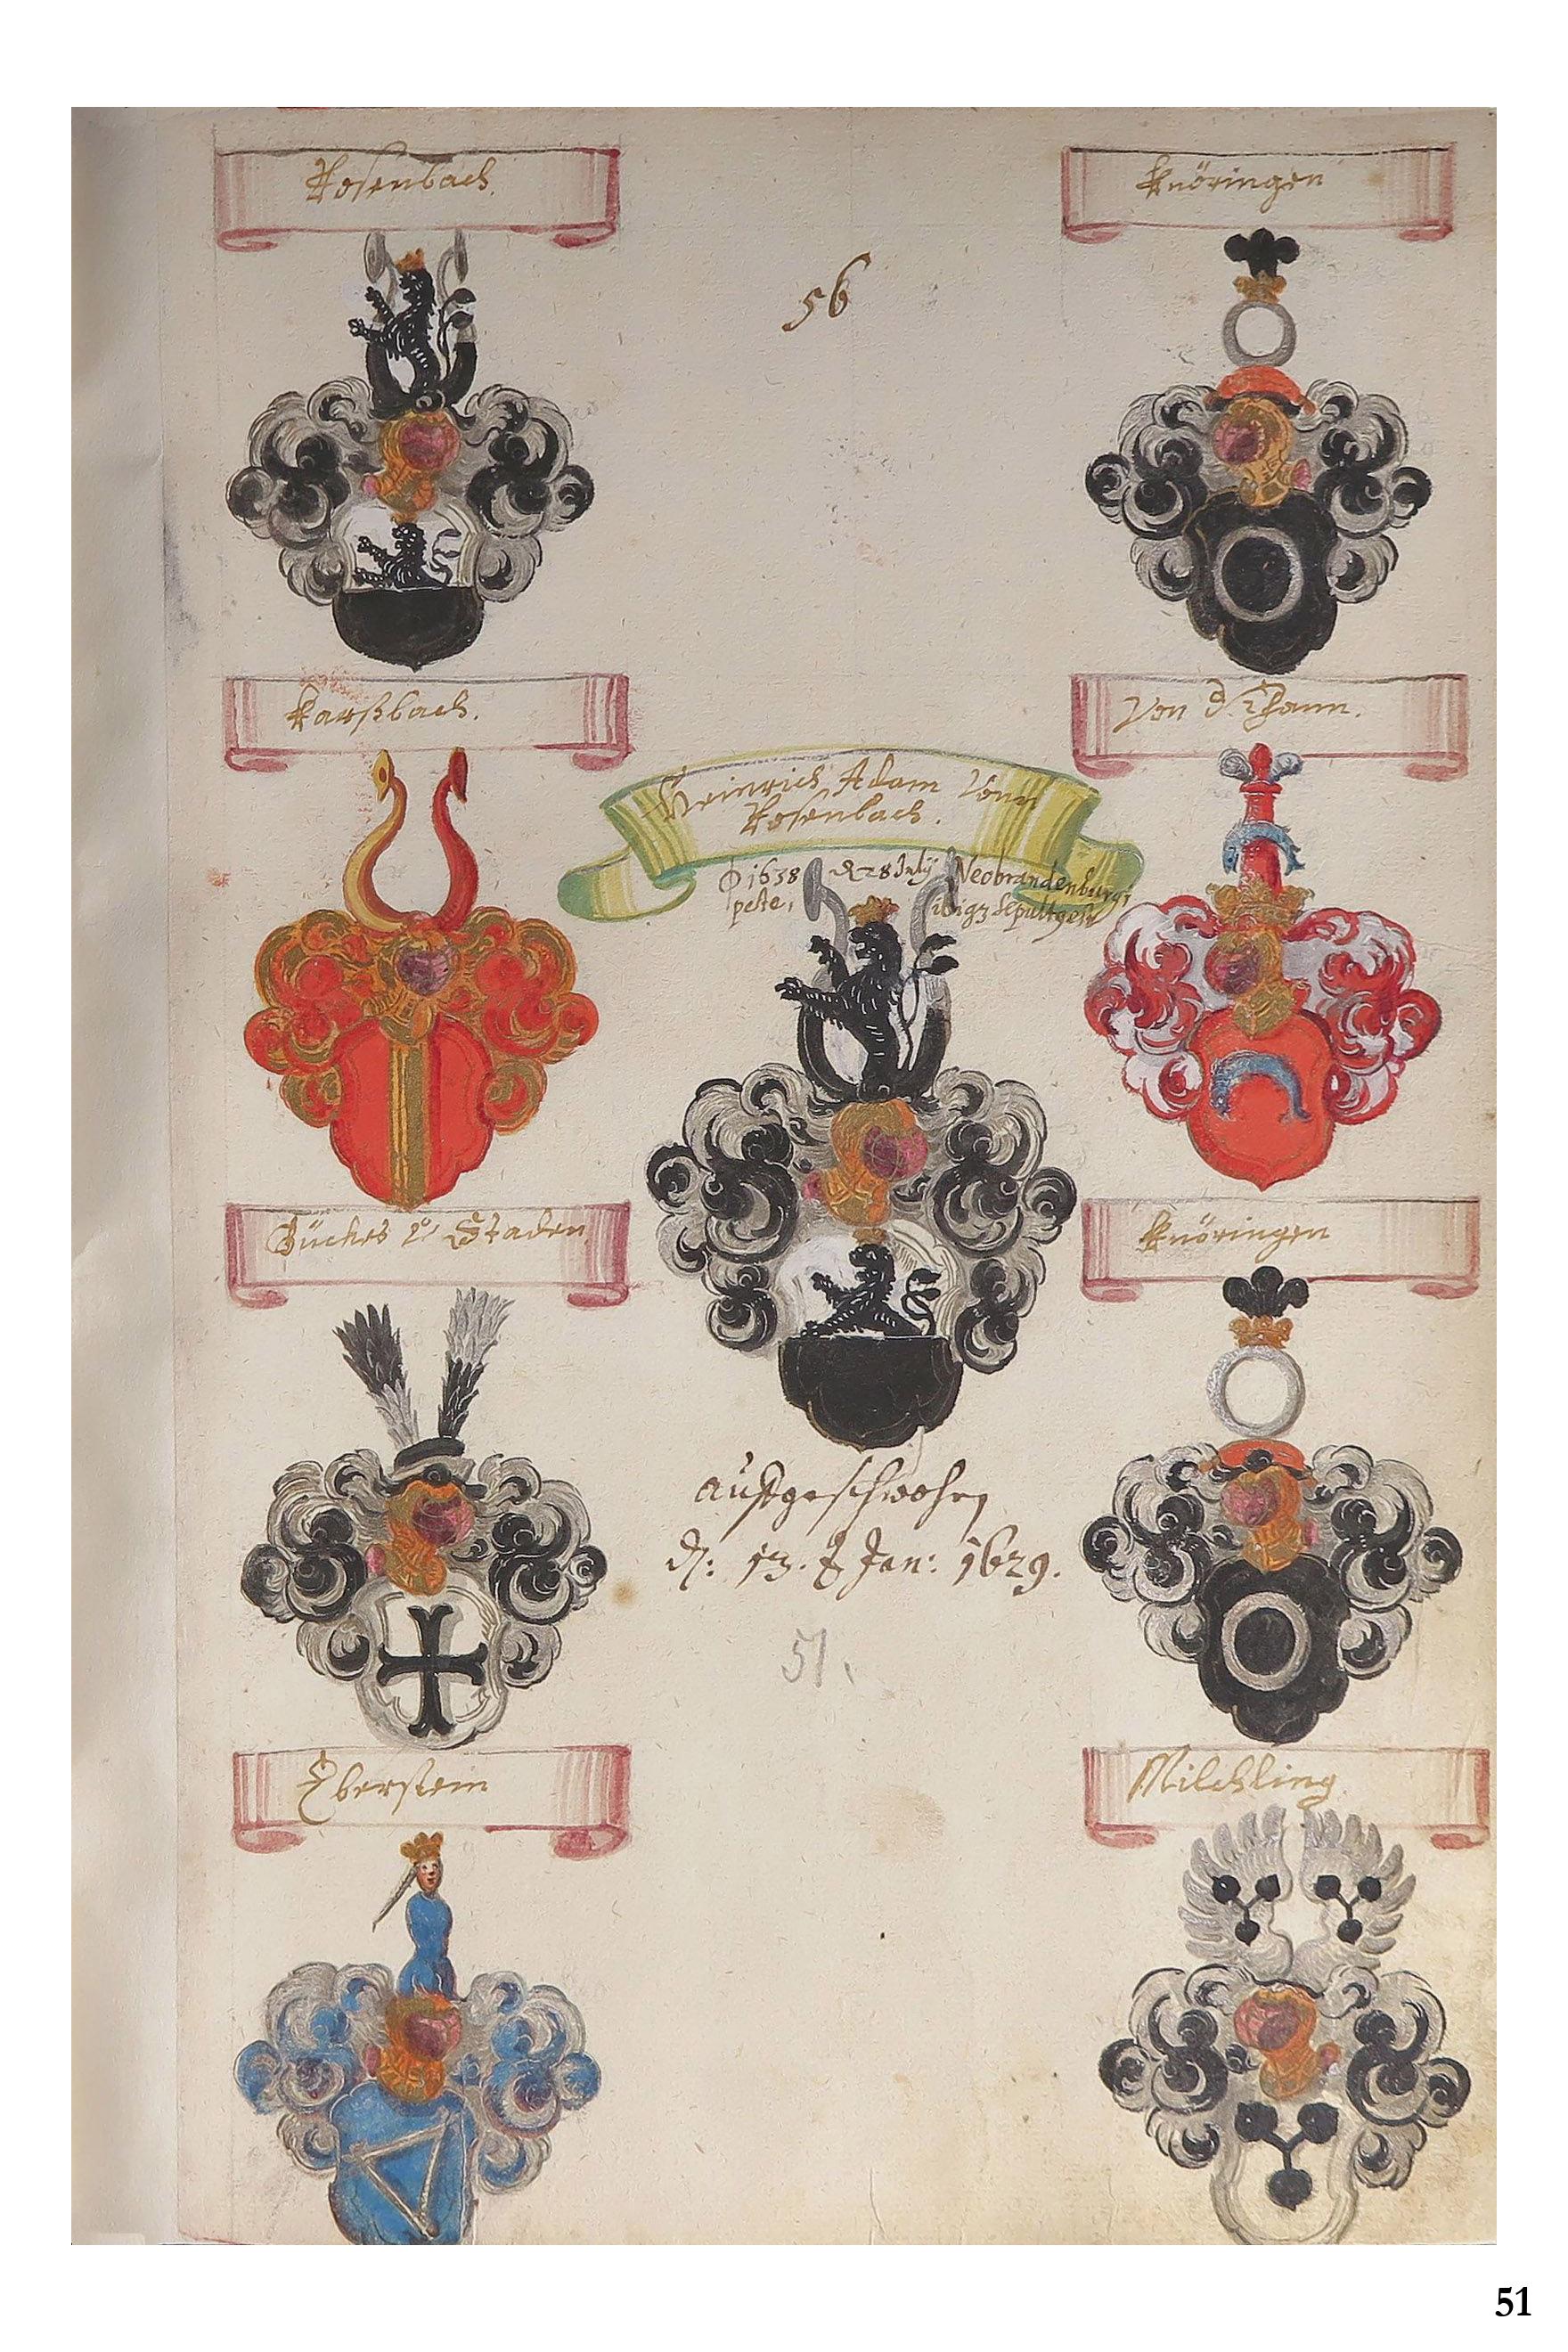 Rosenbach.
Knöringen
56
Karßbach.
Von d. Thann.
Heinrich Adam Vonn
Rosenbach.
1638 28 July Neobrandenburgi
peste, sepult
Büches v. Staden.
Knöringen
auffgeschwohrn
d: 13. Jan: 1629.
51.
Eberstein
Milchling
51